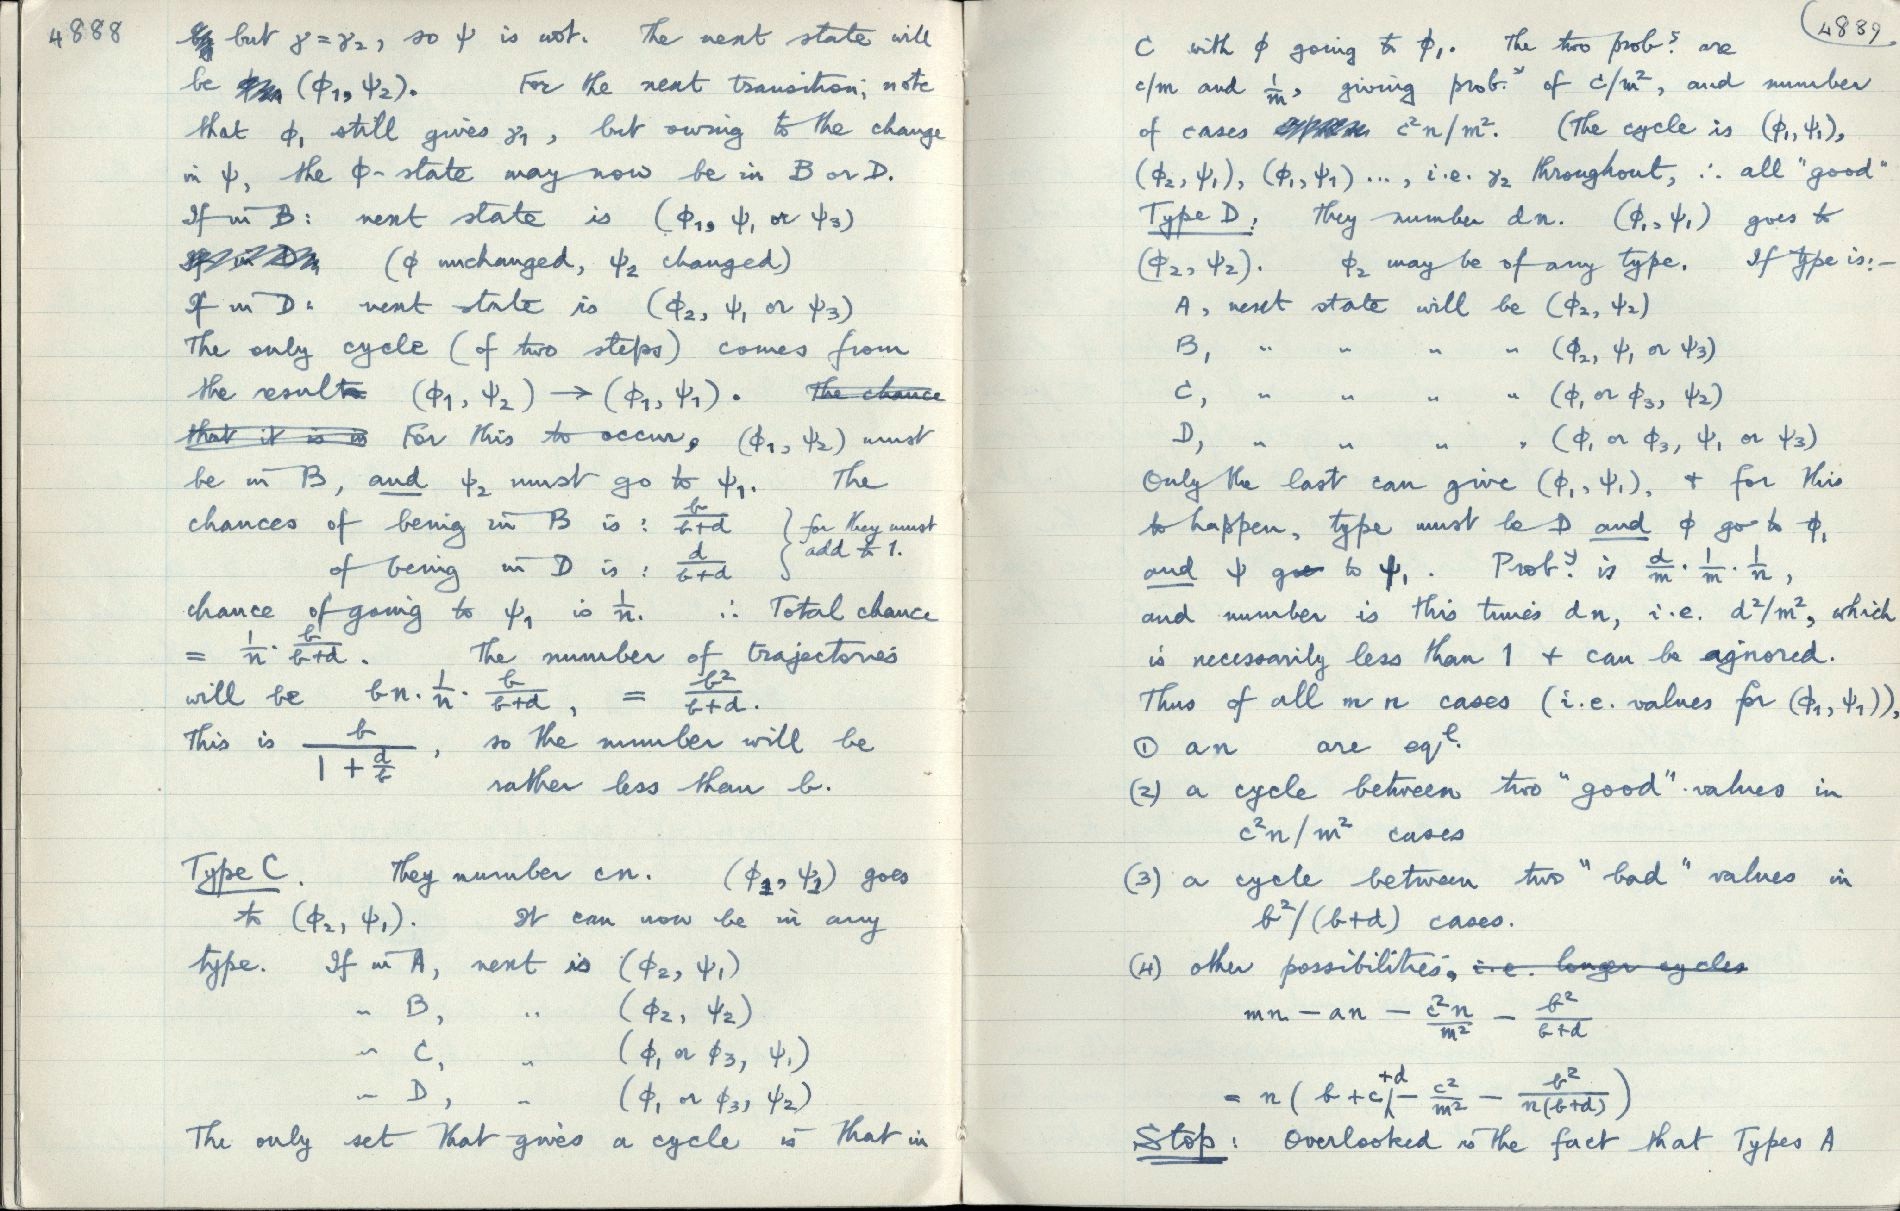 4888
but γ = γ₂, so ψ is not. The next state will
be (ϕ₁, ψ₂). For the next transition; note
that ϕ₁ still gives γ₁, but owing to the change
in ψ, the ϕ-state may now be in B or D.
If in B: next state is (ϕ₁, ψ₁ or ψ₃)
If in D (ϕ unchanged, ψ₂ changed)
If in D: next state is (ϕ₂, ψ₁ or ψ₃)
The only cycle (of two steps) comes from
the result (ϕ₁, ψ₂) → (ϕ₁, ψ₁). The chance
that it is in For this to occur, (ϕ₁, ψ₂) must
be in B, and ψ₂ must go to ψ₁. The
chances of being in B is: b/(b+d) } for they must
of being in D is: d/(b+d) } add to 1.
chance of going to ψ₁ is 1/n. ∴ Total chance
= 1/n · b/(b+d). The number of trajectories
will be bn · 1/n · b/(b+d), = b²/(b+d).
This is b/(1 + d/b), so the number will be
rather less than b.
Type C. They number cn. (ϕ₁, ψ₁) goes
to (ϕ₂, ψ₁). It can now be in any
type. If in A, next is (ϕ₂, ψ₁)
" B, " (ϕ₂, ψ₂)
" C, " (ϕ₁ or ϕ₃, ψ₁)
" D, " (ϕ₁ or ϕ₃, ψ₂)
The only set that gives a cycle is that in
4889
C with ϕ going to ϕ₁. The two prob.ˢ are
c/m and 1/m, giving prob.ʸ of c/m², and number
of cases c²n/m². (The cycle is (ϕ₁, ψ₁),
(ϕ₂, ψ₁), (ϕ₁, ψ₁) ..., i.e. γ₂ throughout, ∴ all "good"
Type D: They number dn. (ϕ₁, ψ₁) goes to
(ϕ₂, ψ₂). ϕ₂ may be of any type. If type is:-
A, next state will be (ϕ₂, ψ₂)
B, " " " " (ϕ₂, ψ₁ or ψ₃)
C, " " " " (ϕ₁ or ϕ₃, ψ₂)
D, " " " " (ϕ₁ or ϕ₃, ψ₁ or ψ₃)
Only the last can give (ϕ₁, ψ₁), + for this
to happen, type must be D and ϕ go to ϕ₁
and ψ go to ψ₁. Prob.ʸ is d/m · 1/m · 1/n,
and number is this times dn, i.e. d²/m², which
is necessarily less than 1 + can be ignored.
Thus of all m n cases (i.e. values for (ϕ₁, ψ₁)),
① an are eqˡ.
(2) a cycle between two "good" values in
c²n/m² cases
(3) a cycle between two "bad" values in
b²/(b+d) cases.
(4) other possibilities, i.e. longer cycles
mn − an − c²n/m² − b²/(b+d)
= n( b + c +d − c²/m² − b²/n(b+d) )
Stop: Overlooked is the fact that Types A